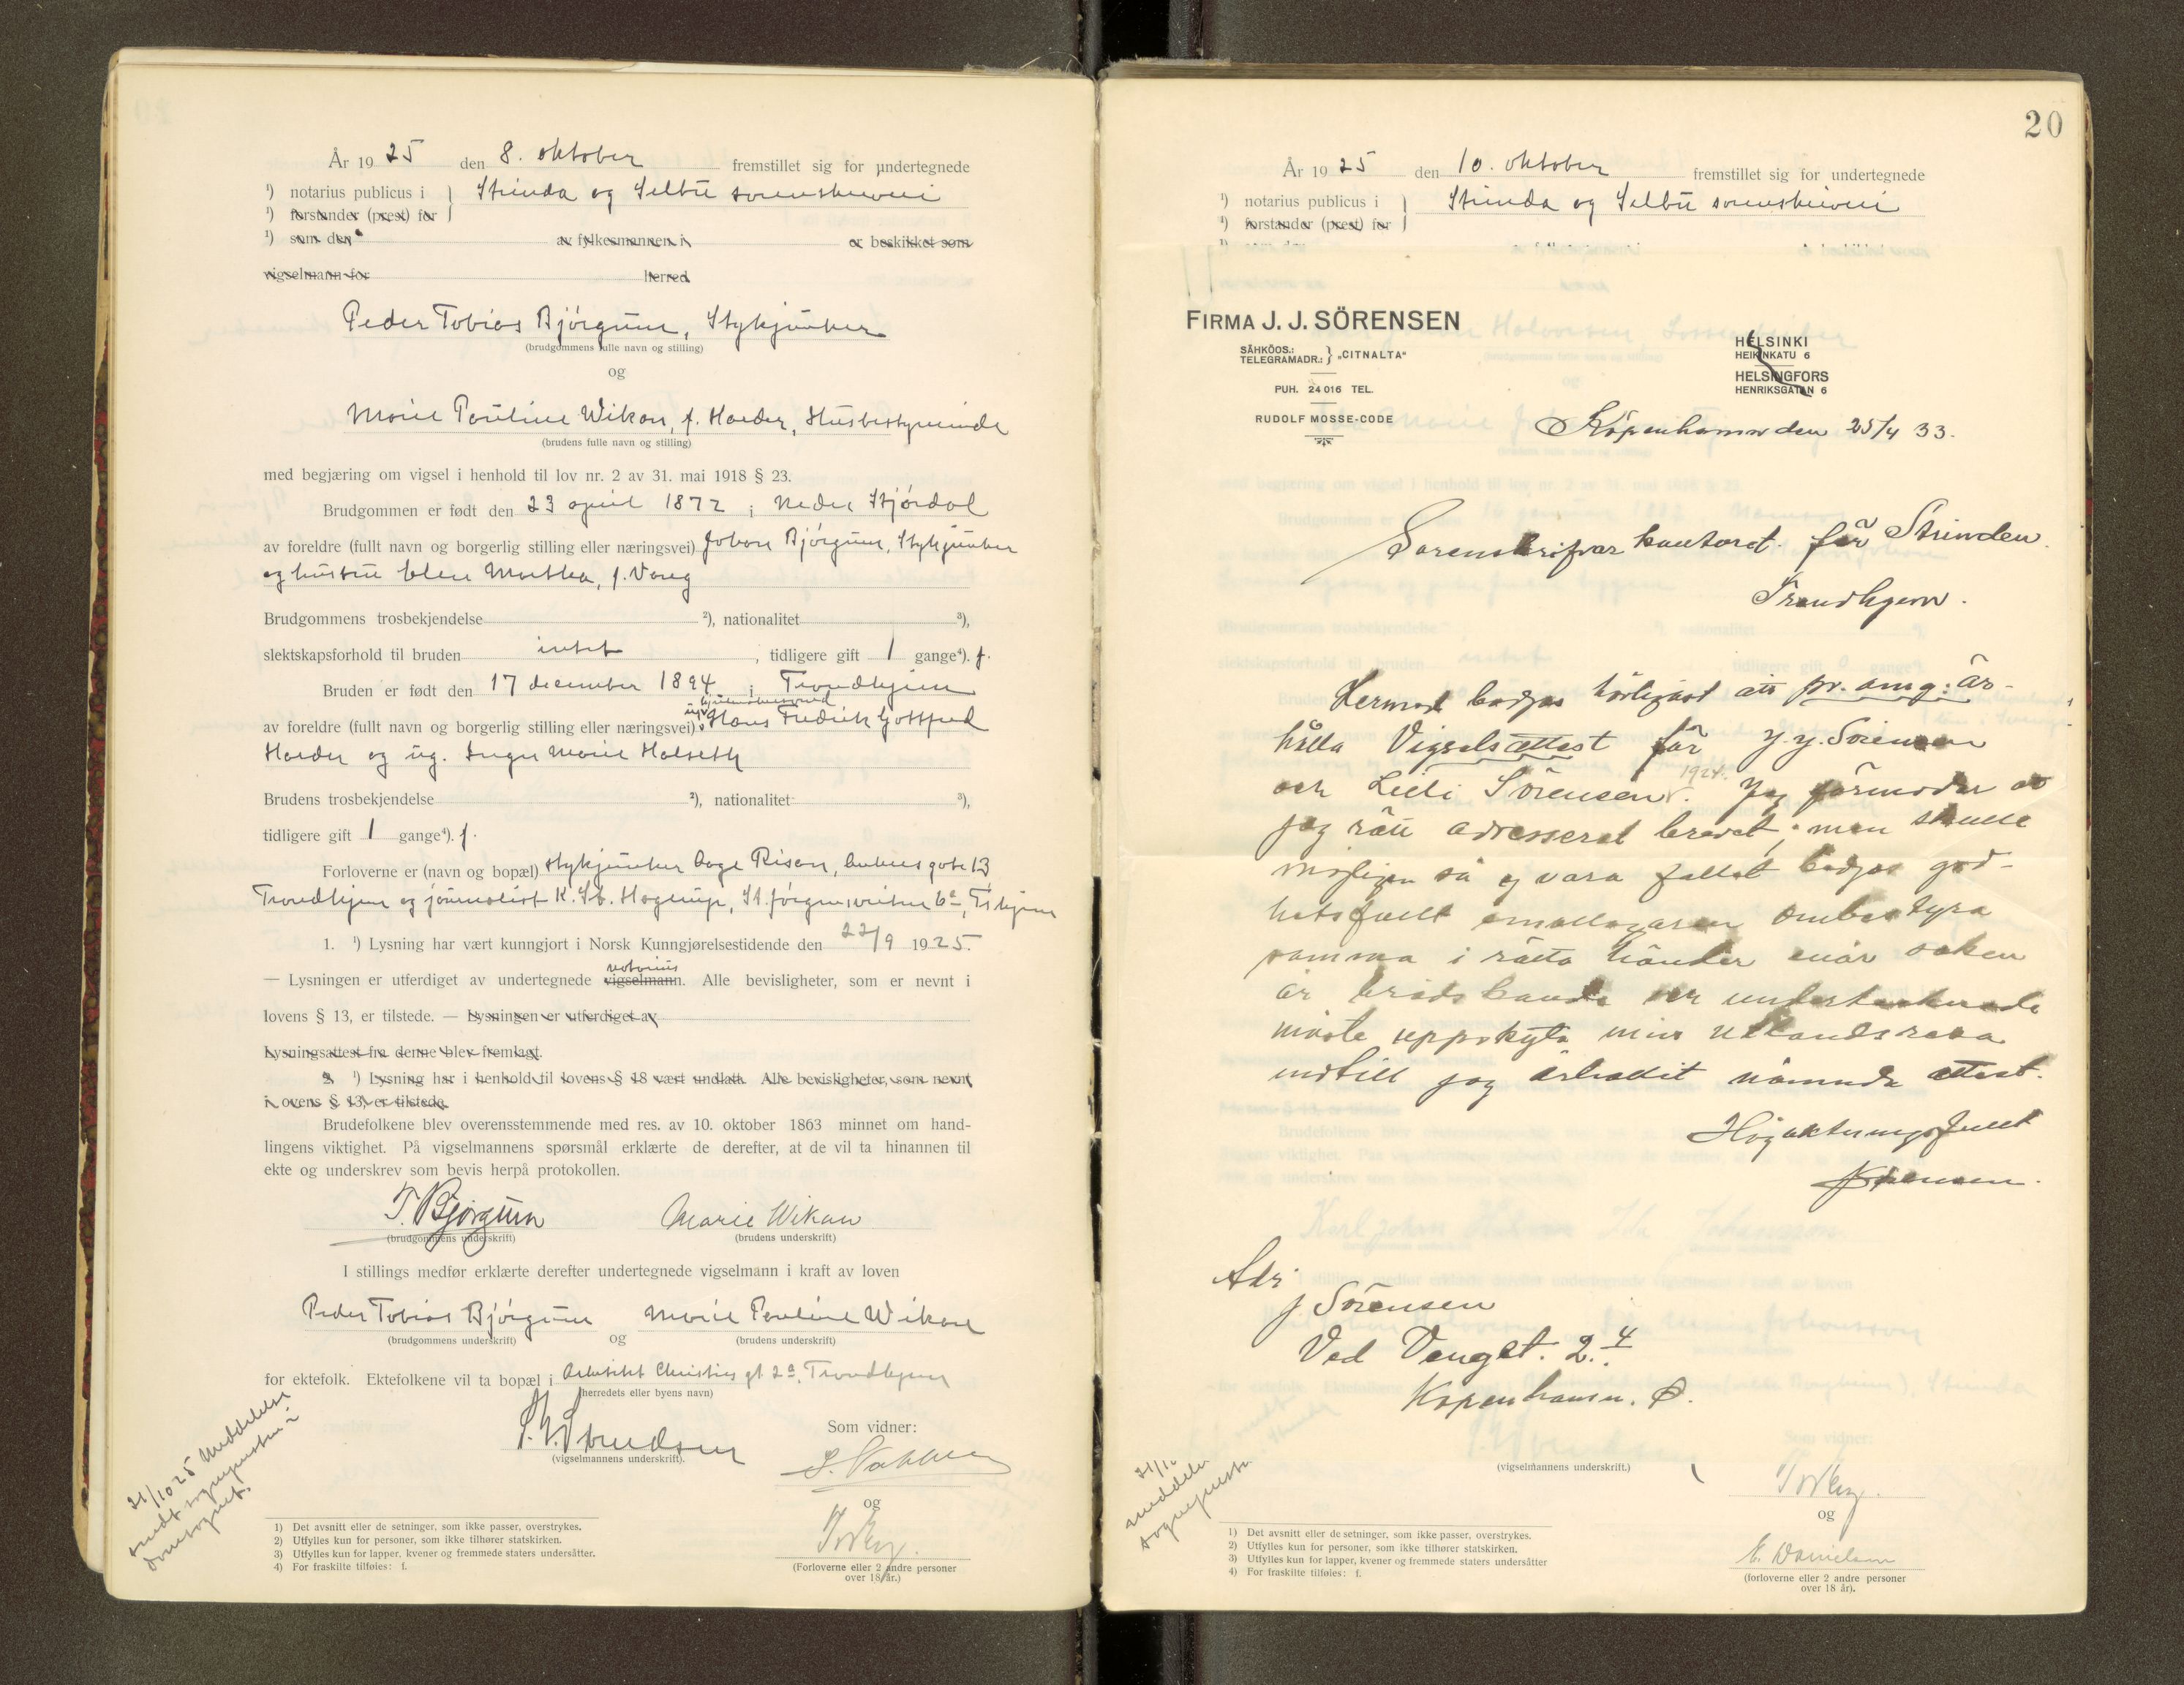 År 1925 den 8. oktober fremstillet sig for undertegnede
¹) notarius publicus i } Strinda og Selbu sorenskriveri
¹) forstander (prest) for
¹) som den av fylkesmannen i er beskikket som
vigselmann for herred
Peder Tobias Bjørgum, Stykjunker
(brudgommens fulle navn og stilling)
og
Marie Pauline Wikan, f. Harder, Husbestyrerinde
(brudens fulle navn og stilling)
med begjæring om vigsel i henhold til lov nr. 2 av 31. mai 1918 § 23.
Brudgommen er født den 23 april 1872 i Nedre Stjørdal
av foreldre (fullt navn og borgerlig stilling eller næringsvei) Johan Bjørgum, Stykjunker
og hustru Martha, f.
Brudgommens trosbekjendelse ²), nationalitet ³),
slektskapsforhold til bruden intet, tidligere gift 1 gange⁴). f.
Bruden er født den 17 december 1894 i Trondhjem
av foreldre (fullt navn og borgerlig stilling eller næringsvei) Hans Fredrik Gottfred
Harder og ug. Inger Marie Halseth
Brudens trosbekjendelse ²), nationalitet ³),
tidligere gift 1 gange⁴). f.
Forloverne er (navn og bopæl) stykjunker Risan, gate 13
Trondhjem og journalist K. St. Hagerup, St. Jørgensveiten 6a, Trhjem
1. ¹) Lysning har vært kunngjort i Norsk Kunngjørelsestidende den 22/9 1925.
notarius
— Lysningen er utferdiget av undertegnede vigselmann. Alle bevisligheter, som er nevnt i
lovens § 13, er tilstede. — Lysningen er utferdiget av
Lysningsattest fra denne blev fremlagt.
2. ¹) Lysning har i henhold til lovens § 18 vært undlatt. Alle bevisligheter, som nevnt
i ovens § 13, er tilstede.
Brudefolkene blev overensstemmende med res. av 10. oktober 1863 minnet om hand-
lingens viktighet. På vigselmannens spørsmål erklærte de derefter, at de vil ta hinannen til
ekte og underskrev som bevis herpå protokollen.
T. Bjørgum Marie Wikan
(brudgommens underskrift) (brudens underskrift)
I stillings medfør erklærte derefter undertegnede vigselmann i kraft av loven
Peder Tobias Bjørgum og Marie Pauline Wikan
(brudgommens underskrift) (brudens underskrift)
for ektefolk. Ektefolkene vil ta bopæl i Arkitekt Christies gt 2a, Trondhjem
(herredets eller byens navn)
(vigselmannens underskrift).
Som vidner:
og
(Forloverne eller 2 andre personer
over 18 år.)
21/10 25 Meddelelse
sendt sognepresten i
Domsognet.
1) Det avsnitt eller de setninger, som ikke passer, overstrykes.
2) Utfylles kun for personer, som ikke tilhører statskirken.
3) Utfylles kun for lapper, kvener og fremmede staters undersåtter.
4) For fraskilte tilføies: f.
20
År 1925 den 10. oktober fremstillet sig for undertegnede
¹) notarius publicus i } Strinda og Selbu sorenskriveri
¹) forstander (prest) for
FIRMA J. J. SÖRENSEN
SÄHKÖOS.: TELEGRAMADR.: } „CITNALTA“
PUH. 24 016 TEL.
RUDOLF MOSSE-CODE
HELSINKI
HEIKINKATU 6
HELSINGFORS
HENRIKSGATAN 6
Köpenhamn den 25/4 33.
Sorenskrifvar kontoret för Strinden.
Trondhjem.
Hermed bedjes höfligast att pr. omg. är-
hålla Vigselsattest för J. J. Sörensen
och Lilli Sörensen. 1924. Jag förmodar at
jag rätt adresserat brevet, men skulle
möjligen så ej vara fallet bedjes god-
hetsfullt emottagaren ombestyra
samma i rätta händer enär saken
är brådskande och undertecknade
måste uppskyta min utlandsresa
indtill jag erhållit nämnda attest.
Högaktningsfullt
JSörensen.
Adr
J Sörensen
Ved Venget. 2. 4
Kopenhamn. Ø.
(vigselmannens underskrift.)
Som vidner:
og
E. Danielsen
(forloverne eller 2 andre personer
over 18 år).
21/10
meddelel
sognepreste
1) Det avsnitt eller de setninger, som ikke passer, overstrykes.
2) Utfylles kun for personer, som ikke tilhører statskirken.
3) Utfylles kun for lapper, kvener og fremmede staters undersåtter
4) For fraskilte tilføies: f.